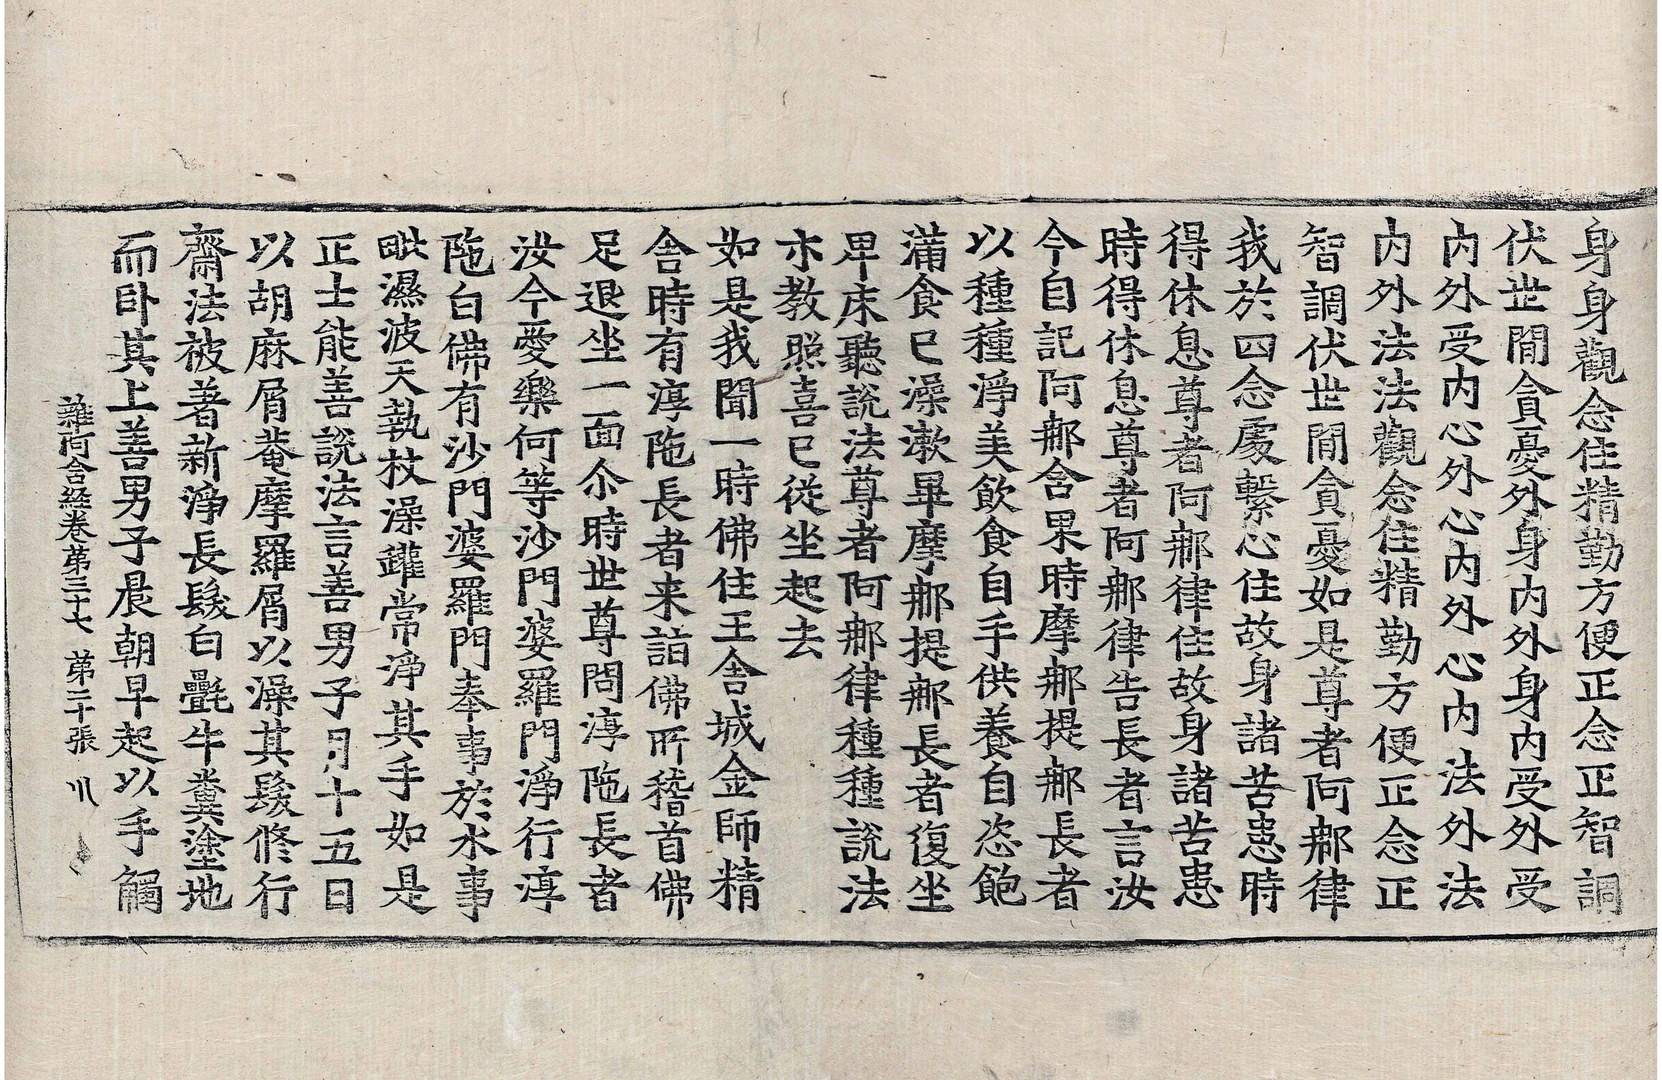 身身觀念住精勤方便正念正智調
伏世閒貪憂外身內外身內受外受
內外受內心外心內外心內法外法
內外法法觀念住精勤方便正念正
智調伏世閒貪憂如是尊者阿那律
我於四念處繫心住故身諸苦患時
得休息尊者阿那律住故身諸苦患
時得休息尊者阿那律告長者言汝
今自記阿那含果時摩那提那長者
以種種淨美飲食自手供養自恣飽
滿食已澡漱畢摩那提那長者復坐
卑床聽說法尊者阿那律種種說法
示教照喜已從坐起去
如是我聞一時佛住王舍城金師精
舍時有淳陁長者来詣佛所稽首佛
足退坐一面尒時世尊問淳陁長者
汝今愛樂何等沙門婆羅門淨行淳
陁白佛有沙門婆羅門奉事於水事
毗濕波天執杖澡鑵常淨其手如是
正士能善說法言善男子月十五日
以胡麻屑菴摩羅屑以澡其髮修行
齋法被著新淨長髮白㲲牛糞塗地
而臥其上善男子晨朝早起以手觸
雜阿含経卷苐三十七 苐二十張